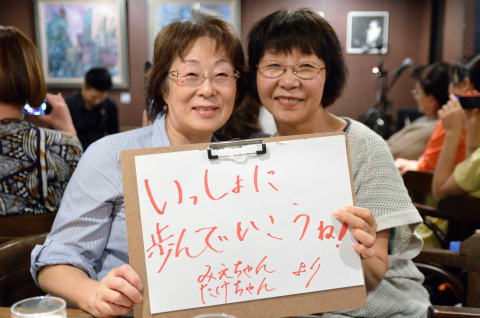 いっしょに
歩んでいこうね!
みえちゃん
たけちゃん より